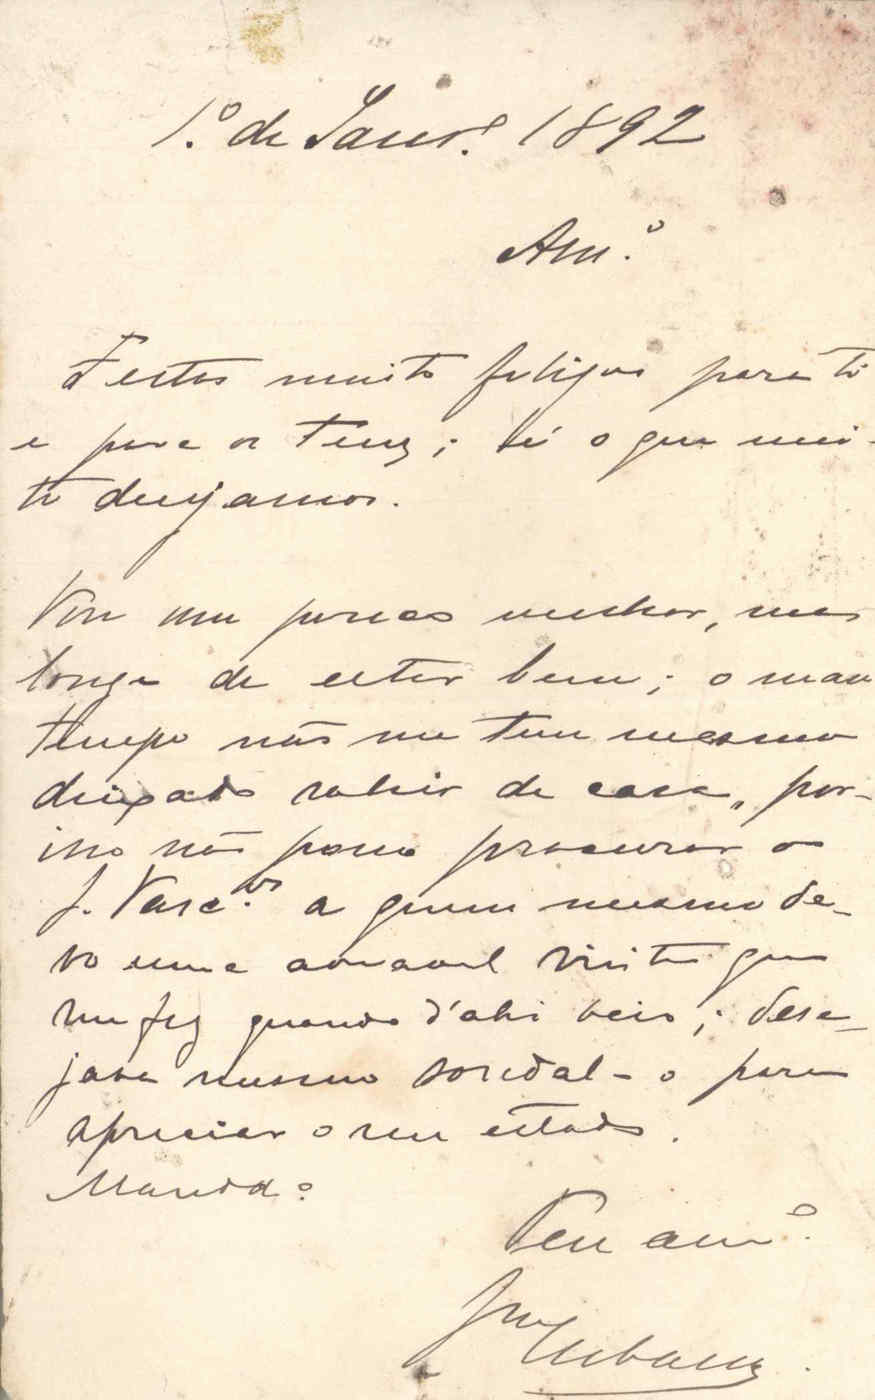 1.º de Janrº. 1892
Am.º
Festas muito felizes para ti
e para os teus; é o que mui-
to desejamos.
Vou um pouco melhor, mas
longe de estar bem; o mau
tempo não me tem mesmo
deixado sahir de casa, por-
isso não posso procurar o
J. Vasc.os a quem mesmo de-
vo uma amavel visita que
me fez quando d'ahi veio; dese-
java mesmo sondal-o para
apreciar o seu estado.
Manda:
Teu am.º
Urbano